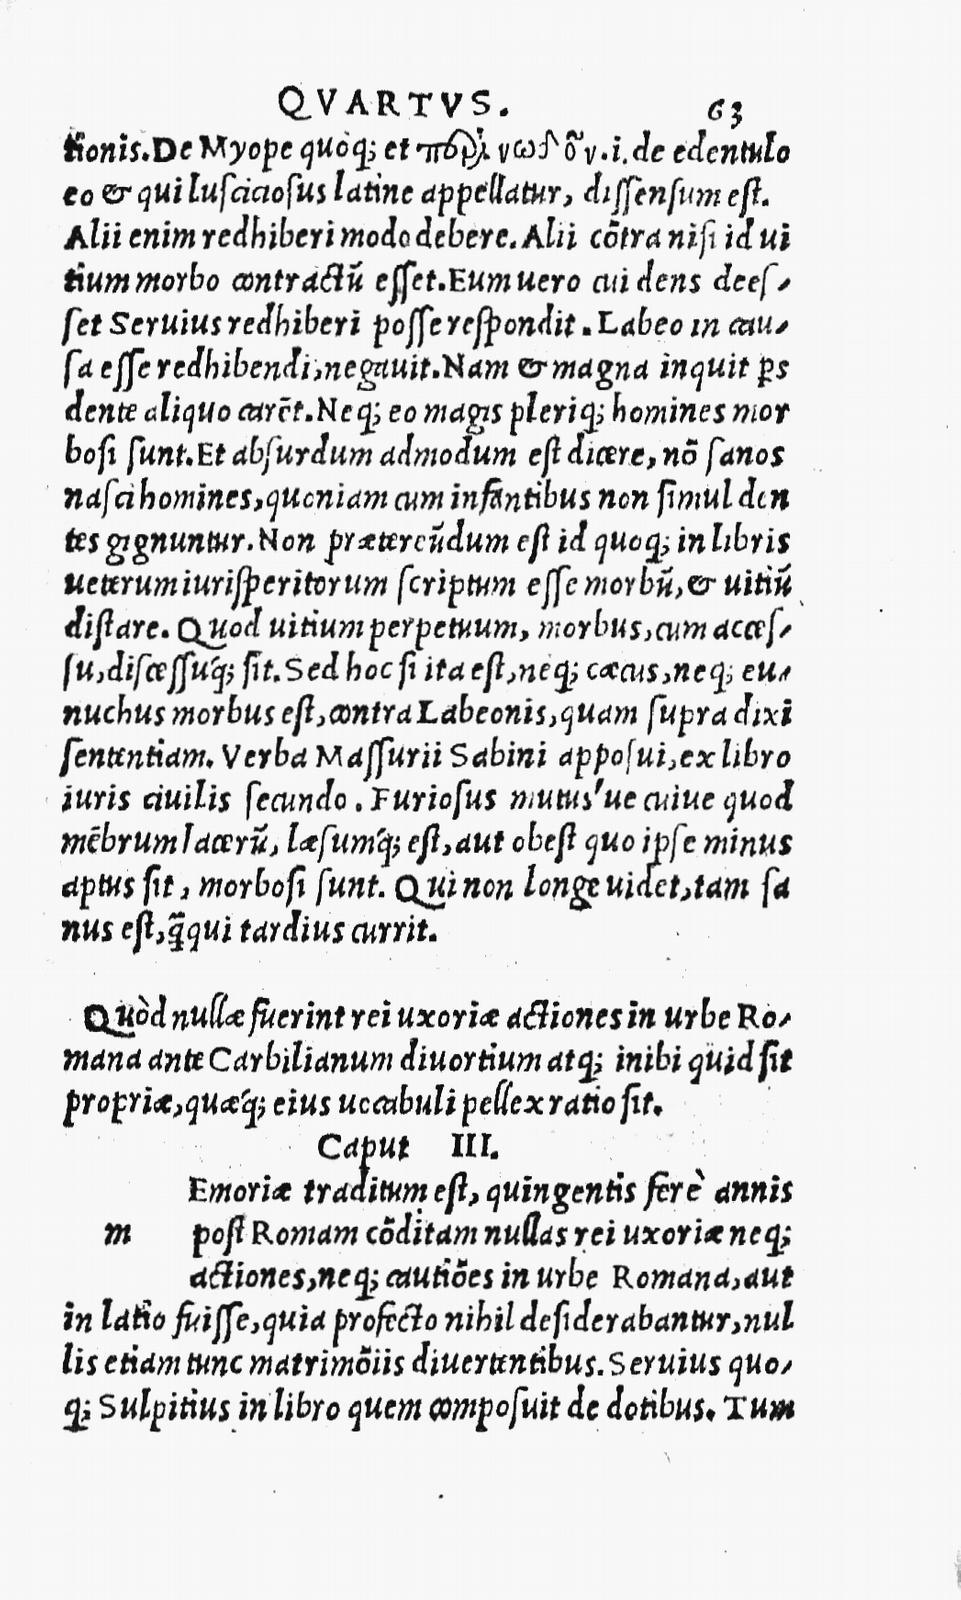 QVARTVS. 63
tionis. De Myope quoq; et νωδου.i. de edentulo
eo & qui lusciciosus latine appellatur, dissensum est.
Alii enim redhiberi modo debere. Alii cõtra nisi id ui
tium morbo contractũ esset. Eum uero cui dens dees-
set Seruius redhiberi posse respondit. Labeo in cau-
sa esse redhibendi, negauit. Nam & magna inquit ꝑs
dente aliquo carẽt. Neq; eo magis pleriq; homines mor
bosi sunt. Et absurdum admodum est dicere, nõ sanos
nasci homines, quoniam cum infantibus non simul den
tes gignuntur. Non prætereũdum est id quoq; in libris
ueterum iurisperitorum scriptum esse morbũ, & uitiũ
distare. Quod uitium perpetuum, morbus, cum acces-
su, discessuq́; sit. Sed hoc si ita est, neq; cæcus, neq; eu-
nuchus morbus est, contra Labeonis, quam supra dixi
sententiam. Verba Massurii Sabini apposui, ex libro
iuris ciuilis secundo. Furiosus mutus'ue cuiue quod
mẽbrum lacerũ, læsumq́; est, aut obest quo ipse minus
aptus sit, morbosi sunt. Qui non longe uidet, tam sa
nus est, q̃qui tardius currit.
Quòd nullæ fuerint rei uxoriæ actiones in urbe Ro-
mana ante Carbilianum diuortium atq; inibi quid sit
propriæ, quæq́; eius uocabuli pellex ratio sit.
Caput III.
Emoriæ traditum est, quingentis ferè annis
m post Romam cõditam nullas rei uxoriæ neq;
actiones, neq; cautiões in urbe Romana, aut
in latio fuisse, quia profecto nihil desiderabantur, nul
lis etiam tunc matrimõiis diuertentibus. Seruius quo-
q; Sulpitius in libro quem composuit de dotibus. Tum